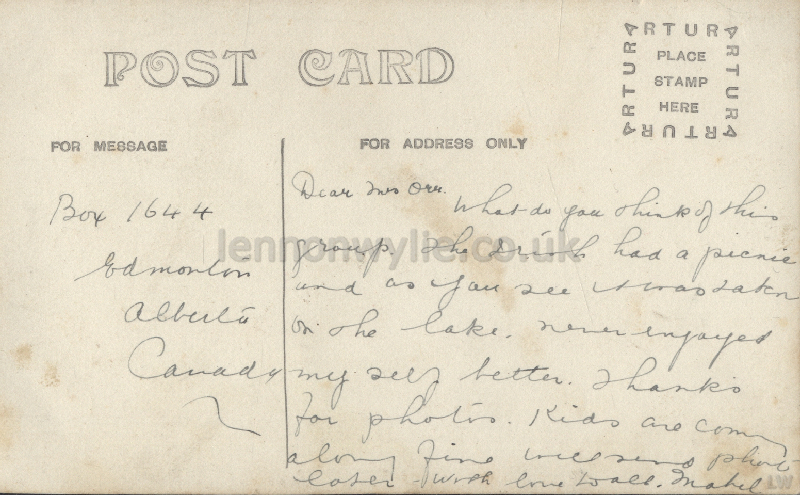 POST CARD
ARTURA
ARTURA
ARTURA
ARTURA
PLACE
STAMP
HERE
FOR MESSAGE
FOR ADDRESS ONLY
Box 1644
Edmonton
Alberta
Canada
Dear Mrs Orr.
What do you think of this
group. The Irish had a picnic
and as you see it was taken
on the lake. never enjoyed
my self better. Thanks
for photos. Kids are coming
along fine will send photo
later - with love to all. Mabel
lennonwylie.co.uk
LW